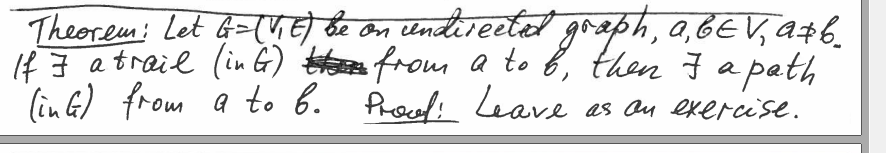 Theorem: Let G=(V,E) be an undirected graph, a,b∈V, a≠b.
If ∃ a trail (in G) from a to b, then ∃ a path
(in G) from a to b. Proof: Leave as an exercise.